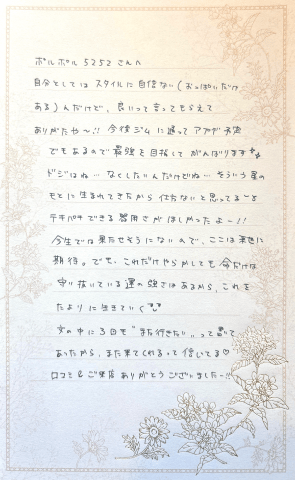 ポルポル5252さんへ
自分としてはスタイルに自信ない(おっぱいだけ
ある)んだけど、良いって言ってもらえて
ありがたや〜!! 今後ジムに通ってアプデ予定
でもあるので最強を目指してがんばります
ドジはね…なくしたいんだけどね…そういう星の
もとに生まれてきたから仕方ないと思ってる
テキパキできる器用さがほしかったよー!!
今生では果たせそうにないので、ここは来世に
期待。でも、これだけやらかしても命だけは
守り抜いている運の強さはあるから、これを
たよりに生きていく
文の中に3回も"また行きたい"って書いて
あったから、また来てくれるって信じてる♡
口コミ&ご来店ありがとうございましたー!!